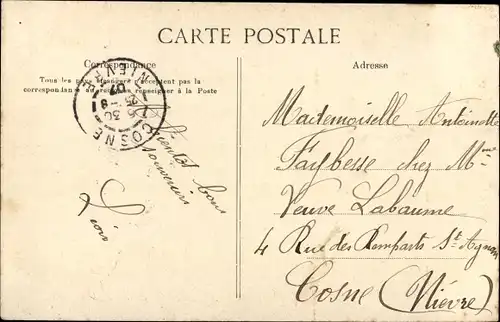 CARTE POSTALE
Correspondance
Tous les pays étrangers n'acceptent pas la
correspondance au recto, se renseigner à la Poste
COSNE
NIÈVRE
Bientôt bons
souvenirs
Adresse
Mademoiselle Antoinette
Faybesse chez Mme
Veuve Labaume
4 Rue des Remparts St Agnan
Cosne (Nièvre)